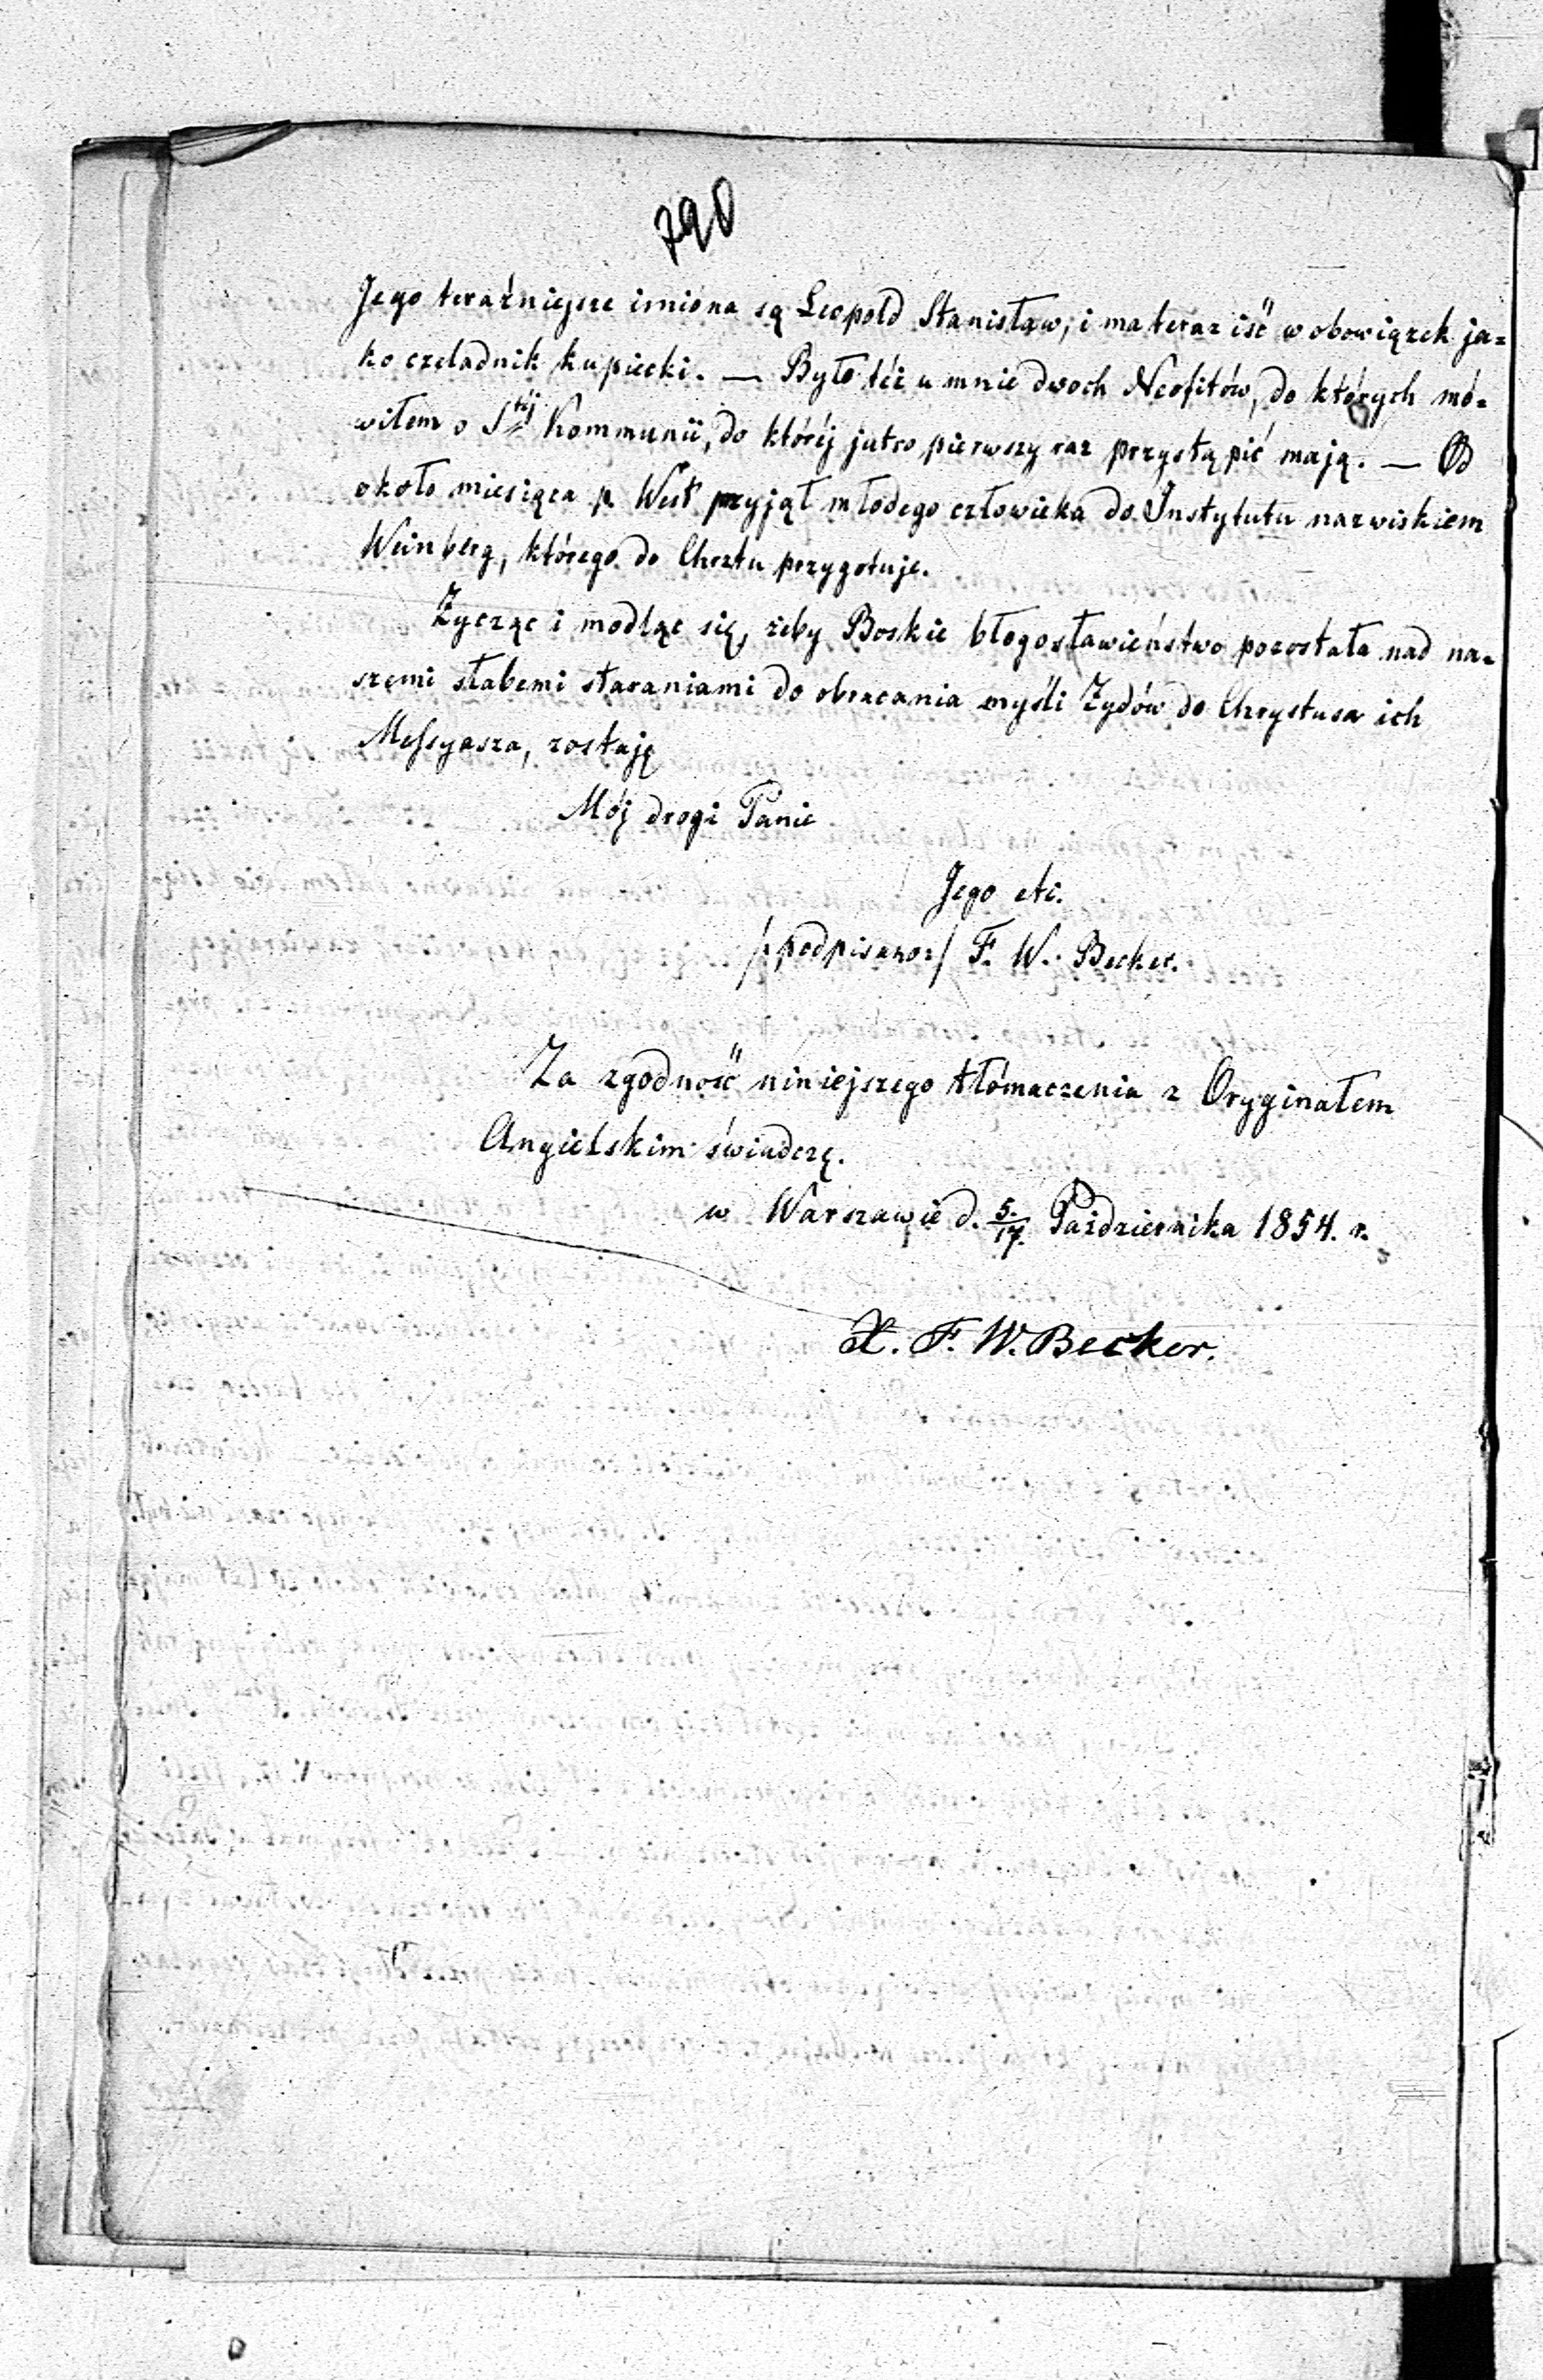 790
Jego teraźniejsze imiona są Leopold Stanisław, i ma teraz iść w obowiązek ja=
ko czeladnik kupiecki. — Było też u mnie dwoch Neofitów, do których mó=
wiłem o Stéj Kommunii, do któréj jutro pierwszy raz przystąpić mają. — Od
około miesiąca p. West przyjął młodego człowieka do Instytutu nazwiskiem
Weinberg, którego do Chrztu przygotuje.
Życząc i modląc się, żeby Boskie błogosławieństwo pozostała nad na=
szemi słabemi staraniami do obracania myśli Żydów do Chrystusa ich
Messyasza, zostaję
Mój drogi Panie
Jego etc.
/:podpisano:/ F. W. Becker.
Za zgodność niniejszego tłómaczenia z Oryginałem
Angielskim świadczę.
w Warszawie d. 5/17. Października 1854. r.
X. F. W. Becker.